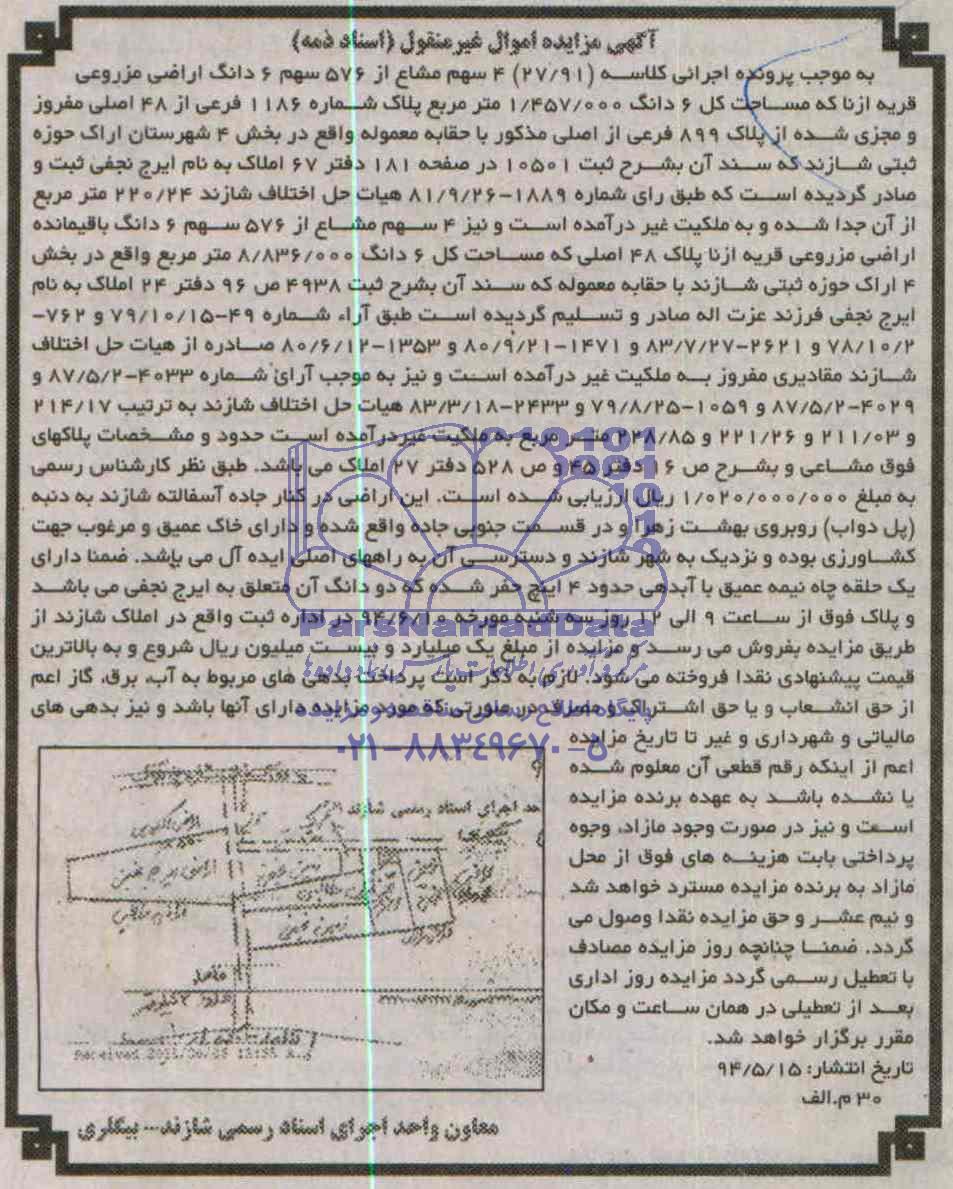 آگهی مزایده اموال غیرمنقول (اسناد ذمه)
به موجب پرونده اجرائی کلاسه (۲۷/۹۱) ۴ سهم مشاع از ۵۷۶ سهم ۶ دانگ اراضی مزروعی
قریه ازنا که مساحت کل ۶ دانگ ۱/۴۵۷/۰۰۰ متر مربع پلاک شماره ۱۱۸۶ فرعی از ۴۸ اصلی مفروز
و مجزی شده از پلاک ۸۹۹ فرعی از اصلی مذکور با حقابه معموله واقع در بخش ۴ شهرستان اراک حوزه
ثبتی شازند که سند آن بشرح ثبت ۱۰۵۰۱ در صفحه ۱۸۱ دفتر ۶۷ املاک به نام ایرج نجفی ثبت و
صادر گردیده است که طبق رای شماره ۱۸۸۹-۸۱/۹/۲۶ هیات حل اختلاف شازند ۲۲۰/۲۴ متر مربع
از آن جدا شده و به ملکیت غیر در آمده است و نیز ۴ سهم مشاع از ۵۷۶ سهم ۶ دانگ باقیمانده
اراضی مزروعی قریه ازنا پلاک ۴۸ اصلی که مساحت کل ۶ دانگ ۸/۸۳۶/۰۰۰ متر مربع واقع در بخش
۴ اراک حوزه ثبتی شازند با حقابه معموله که سند آن بشرح ثبت ۴۹۳۸ ص ۹۶ دفتر ۲۴ املاک به نام
ایرج نجفی فرزند عزت اله صادر و تسلیم گردیده است طبق آراء شماره ۴۹-۷۹/۱۰/۱۵ و ۷۶۲-
۷۸/۱۰/۲ و ۲۶۲۱-۸۳/۷/۲۷ و ۱۴۷۱-۸۰/۹/۲۱ و ۱۳۵۳-۸۰/۶/۱۲ صادره از هیات حل اختلاف
شازند مقادیری مفروز به ملکیت غیر درآمده است و نیز به موجب آرائ شماره ۴۰۳۳-۸۷/۵/۲ و
۴۰۲۹-۸۷/۵/۲ و ۱۰۵۹-۷۹/۸/۲۵ و ۲۴۳۳-۸۳/۳/۱۸ هیات حل اختلاف شازند به ترتیب ۲۱۴/۱۷
و ۲۱۱/۰۳ و ۲۲۱/۲۶ و ۲۲۸/۸۵ متر مربع به ملکیت غیردرآمده است حدود و مشخصات پلاکهای
فوق مشاعی و بشرح ص ۱۶ دفتر ۴۵ و ص ۵۲۸ دفتر ۲۷ املاک می باشد. طبق نظر کارشناس رسمی
به مبلغ ۱/۰۲۰/۰۰۰/۰۰۰ ریال ارزیابی شده است. این اراضی در کنار جاده آسفالته شازند به دنبه
(پل دواب) روبروی بهشت زهرا و در قسمت جنوبی جاده واقع شده و دارای خاک عمیق و مرغوب جهت
کشاورزی بوده و نزدیک به شهر شازند و دسترسی آن به راههای اصلی ایده آل می باشد. ضمنا دارای
یک حلقه چاه نیمه عمیق با آبدهی حدود ۴ اینچ حفر شده که دو دانگ آن متعلق به ایرج نجفی می باشد
و پلاک فوق از ساعت ۹ الی ۱۲ روز سه شنبه مورخه ۹۴/۶/۱۰ در اداره ثبت واقع در املاک شازند از
طریق مزایده بفروش می رسد و مزایده از مبلغ یک میلیارد و بیست میلیون ریال شروع و به بالاترین
قیمت پیشنهادی نقدا فروخته می شود. لازم به ذکر است پرداخت بدهی های مربوط به آب، برق، گاز اعم
از حق انشعاب و یا حق اشتراک و مصرف در صورتی که مورد مزایده دارای آنها باشد و نیز بدهی های
مالیاتی و شهرداری و غیر تا تاریخ مزایده
اعم از اینکه رقم قطعی آن معلوم شده
یا نشده باشد به عهده برنده مزایده
است و نیز در صورت وجود مازاد، وجوه
پرداختی بابت هزینه های فوق از محل
مازاد به برنده مزایده مسترد خواهد شد
و نیم عشر و حق مزایده نقدا وصول می
گردد. ضمنا چنانچه روز مزایده مصادف
با تعطیل رسمی گردد مزایده روز اداری
بعد از تعطیلی در همان ساعت و مکان
مقرر برگزار خواهد شد.
تاریخ انتشار: ۹۴/۵/۱۵
۳۰ م.الف
حد اجرای اسناد رسمی شازند
معاون واحد اجرای اسناد رسمی شازند--- بیگلری
ParsNamadData
۰۲۱-۸۸۳۴۹۶۷۰-۵